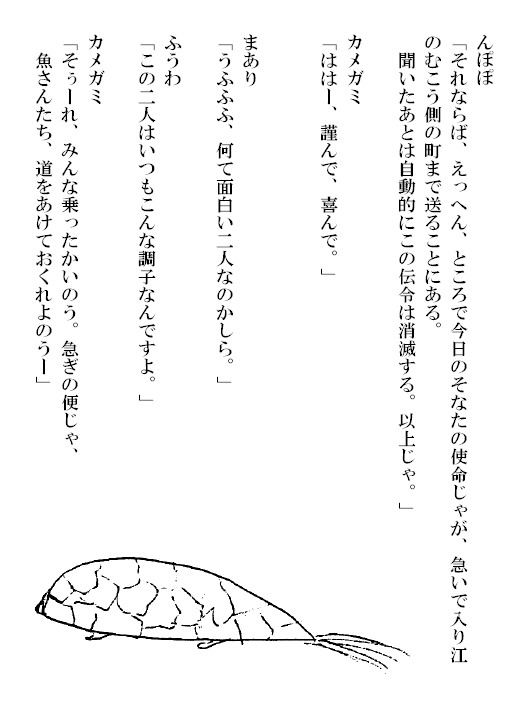 んぽぽ
「それならば、えっへん、ところで今日のそなたの使命じゃが、急いで入り江
のむこう側の町まで送ることにある。
聞いたあとは自動的にこの伝令は消滅する。以上じゃ。」
カメガミ
「ははー、謹んで、喜んで。」
まあり
「うふふふ、何て面白い二人なのかしら。」
ふうわ
「この二人はいつもこんな調子なんですよ。」
カメガミ
「そぅーれ、みんな乗ったかいのう。急ぎの便じゃ、
魚さんたち、道をあけておくれよのうー」